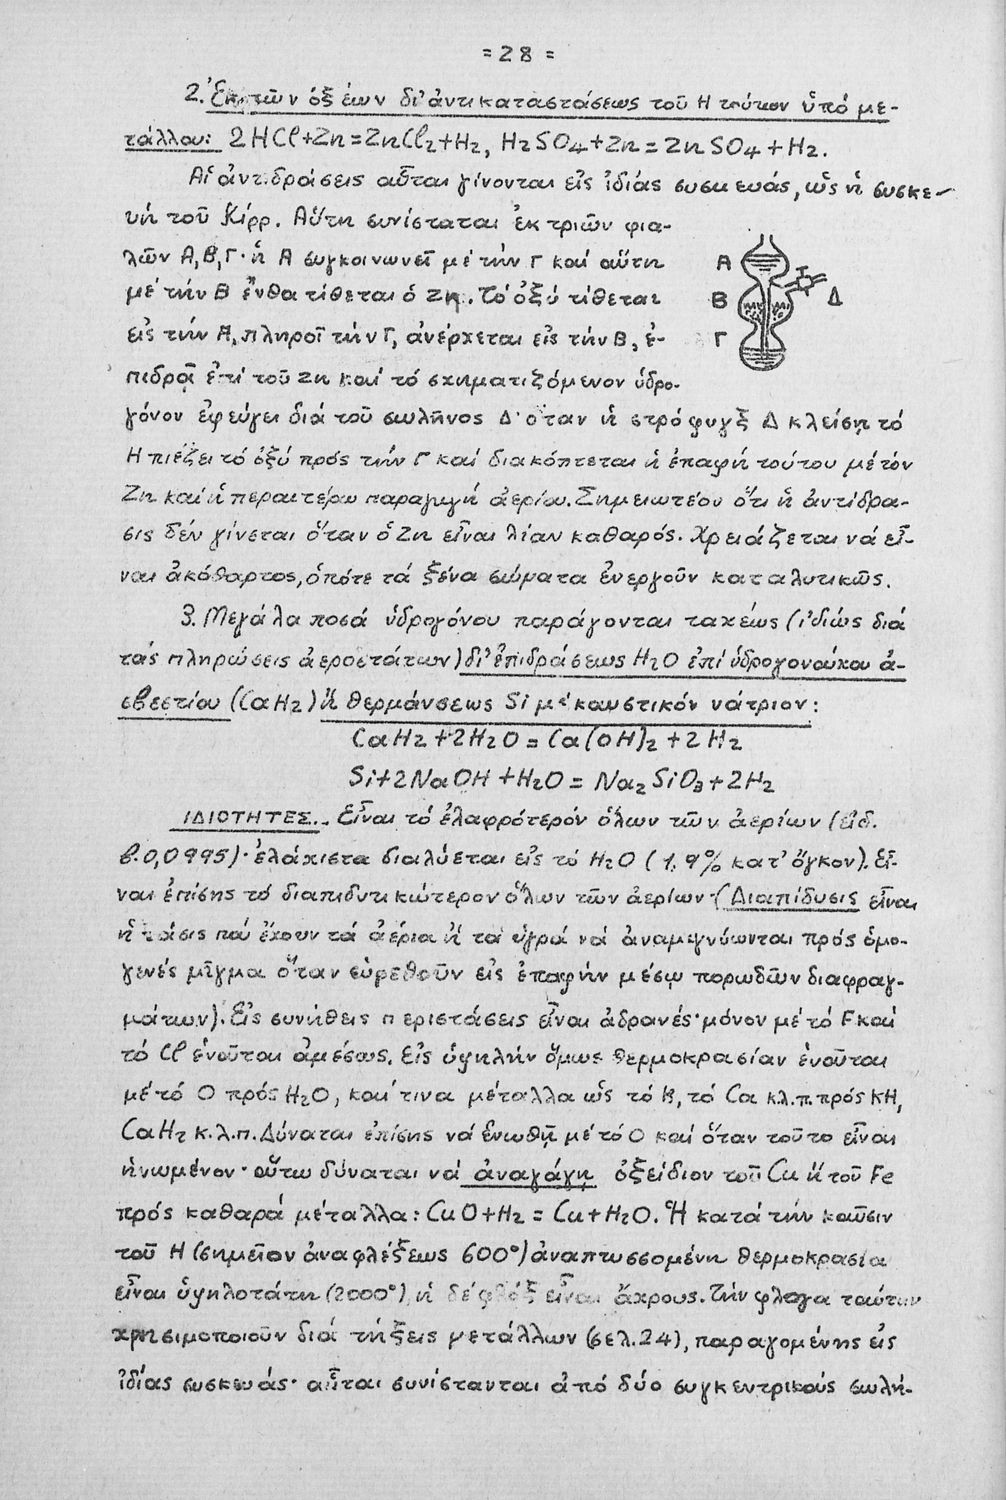 =28=
2. Ἐκ τῶν ὀξέων δι' ἀντικαταστάσεως τοῦ Η τούτων ὑπό με-
τάλλου: 2HCl+Zn=ZnCl₂+H₂, H₂SO₄+Zn=ZnSO₄+H₂.
Αἱ ἀντιδράσεις αὗται γίνονται εἰς ἰδίας συσκευάς, ὡς ἡ συσκε-
υή τοῦ Kipp. Αὕτη συνίσταται ἐκ τριῶν φια-
λῶν Α, Β, Γ· ἡ Α συγκοινωνεῖ μέ τήν Γ καί αὕτη
μέ τήν Β ἔνθα τίθεται ὁ Zn. Τό ὀξύ τίθεται
εἰς τήν Α, πληροῖ τήν Γ, ἀνέρχεται εἰς τήν Β, ἐ-
πιδρᾷ ἐπί τοῦ Zn καί τό σχηματιζόμενον ὑδρο-
γόνον ἐφεύγει διά τοῦ σωλῆνος Δ· ὅταν ἡ στρόφυγξ Δ κλείσῃ τό
Η πιέζει τό ὀξύ πρός τήν Γ καί διακόπτεται ἡ ἐπαφή τούτου μέ τόν
Zn καί ἡ περαιτέρω παραγωγή ἀερίου. Σημειωτέον ὅτι ἡ ἀντίδρα-
σις δέν γίνεται ὅταν ὁ Zn εἶναι λίαν καθαρός. Χρειάζεται νά εἶ-
ναι ἀκάθαρτος, ὁπότε τά ξένα σώματα ἐνεργοῦν καταλυτικῶς.
3. Μεγάλα ποσά ὑδρογόνου παράγονται ταχέως (ἰδίως διά
τάς πληρώσεις ἀεροστάτων) δι' ἐπιδράσεως H₂O ἐπί ὑδρογονούχου ἀ-
σβεστίου (CaH₂) ἤ θερμάνσεως Si μέ καυστικόν νάτριον:
CaH₂+2H₂O=Ca(OH)₂+2H₂
Si+2NaOH+H₂O=Na₂SiO₃+2H₂
ΙΔΙΟΤΗΤΕΣ.- Εἶναι τό ἐλαφρότερόν ὅλων τῶν ἀερίων (εἰδ.
β. 0,0995)· ἐλάχιστα διαλύεται εἰς τό H₂O (1,9% κατ' ὄγκον). Εἶ-
ναι ἐπίσης τό διαπιδυτικώτερον ὅλων τῶν ἀερίων (Διαπίδυσις εἶναι
ἡ τάσις πού ἔχουν τά ἀέρια ἤ τά ὑγρά νά ἀναμιγνύωνται πρός ὁμο-
γενές μῖγμα ὅταν εὑρεθοῦν εἰς ἐπαφήν μέσῳ πορωδῶν διαφραγ-
μάτων). Εἰς συνήθεις περιστάσεις εἶναι ἀδρανές· μόνον μέ τό F καί
τό Cl ἑνοῦται ἀμέσως. Εἰς ὑψηλήν ὅμως θερμοκρασίαν ἑνοῦται
μέ τό Ο πρός H₂O, καί τινα μέταλλα ὡς τό Κ, τό Ca κ.λ.π. πρός KH,
CaH₂ κ.λ.π. Δύναται ἐπίσης νά ἑνωθῇ μέ τό Ο καί ὅταν τοῦτο εἶναι
ἡνωμένον· οὕτω δύναται νά ἀναγάγῃ ὀξείδιον τοῦ Cu ἤ τοῦ Fe
πρός καθαρά μέταλλα: CuO+H₂=Cu+H₂O. Ἡ κατά τήν καῦσιν
τοῦ Η (σημεῖον ἀναφλέξεως 600°) ἀναπτυσσομένη θερμοκρασία
εἶναι ὑψηλοτάτη (2000°), ἡ δέ φλόξ εἶναι ἄχρους. Τήν φλόγα ταύτην
χρησιμοποιοῦν διά τήξεις μετάλλων (σελ. 24), παραγομένης εἰς
ἰδίας συσκευάς· αὗται συνίστανται ἀπό δύο συγκεντρικούς σωλή-
Α
Β
Γ
Δ